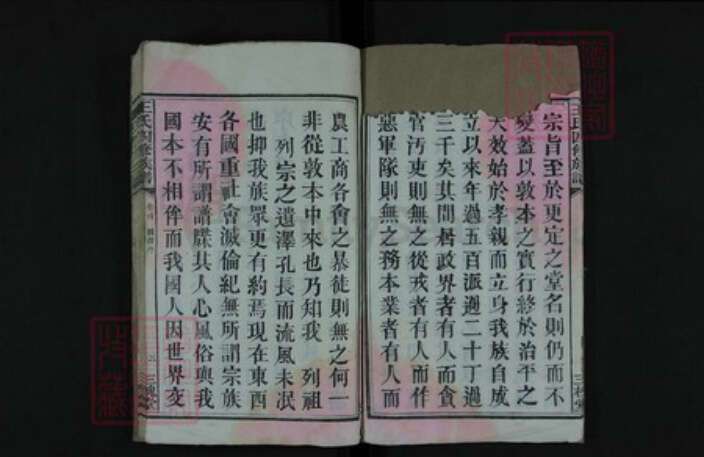 宗旨至於更定之堂名則仍而不
變蓋以敦本之實行終於治平之
大效始於孝親而立身我族自成
立以來年過五百派週二十丁過
三千矣其間居政界者有人而貪
官污吏則無之後戎者有人而作
惡軍隊則無之務本業者有人而
農工商各會之暴徒則無之何一
非從敦本中來也乃知我 列祖
列宗之遺澤孔長而流風未泯
也抑我族眾更有約焉現在東西
各國重社會滅倫紀無所謂宗族
安有所謂譜牒其人心風俗與我
國本不相侔而我國人因世界交
王氏四修族譜